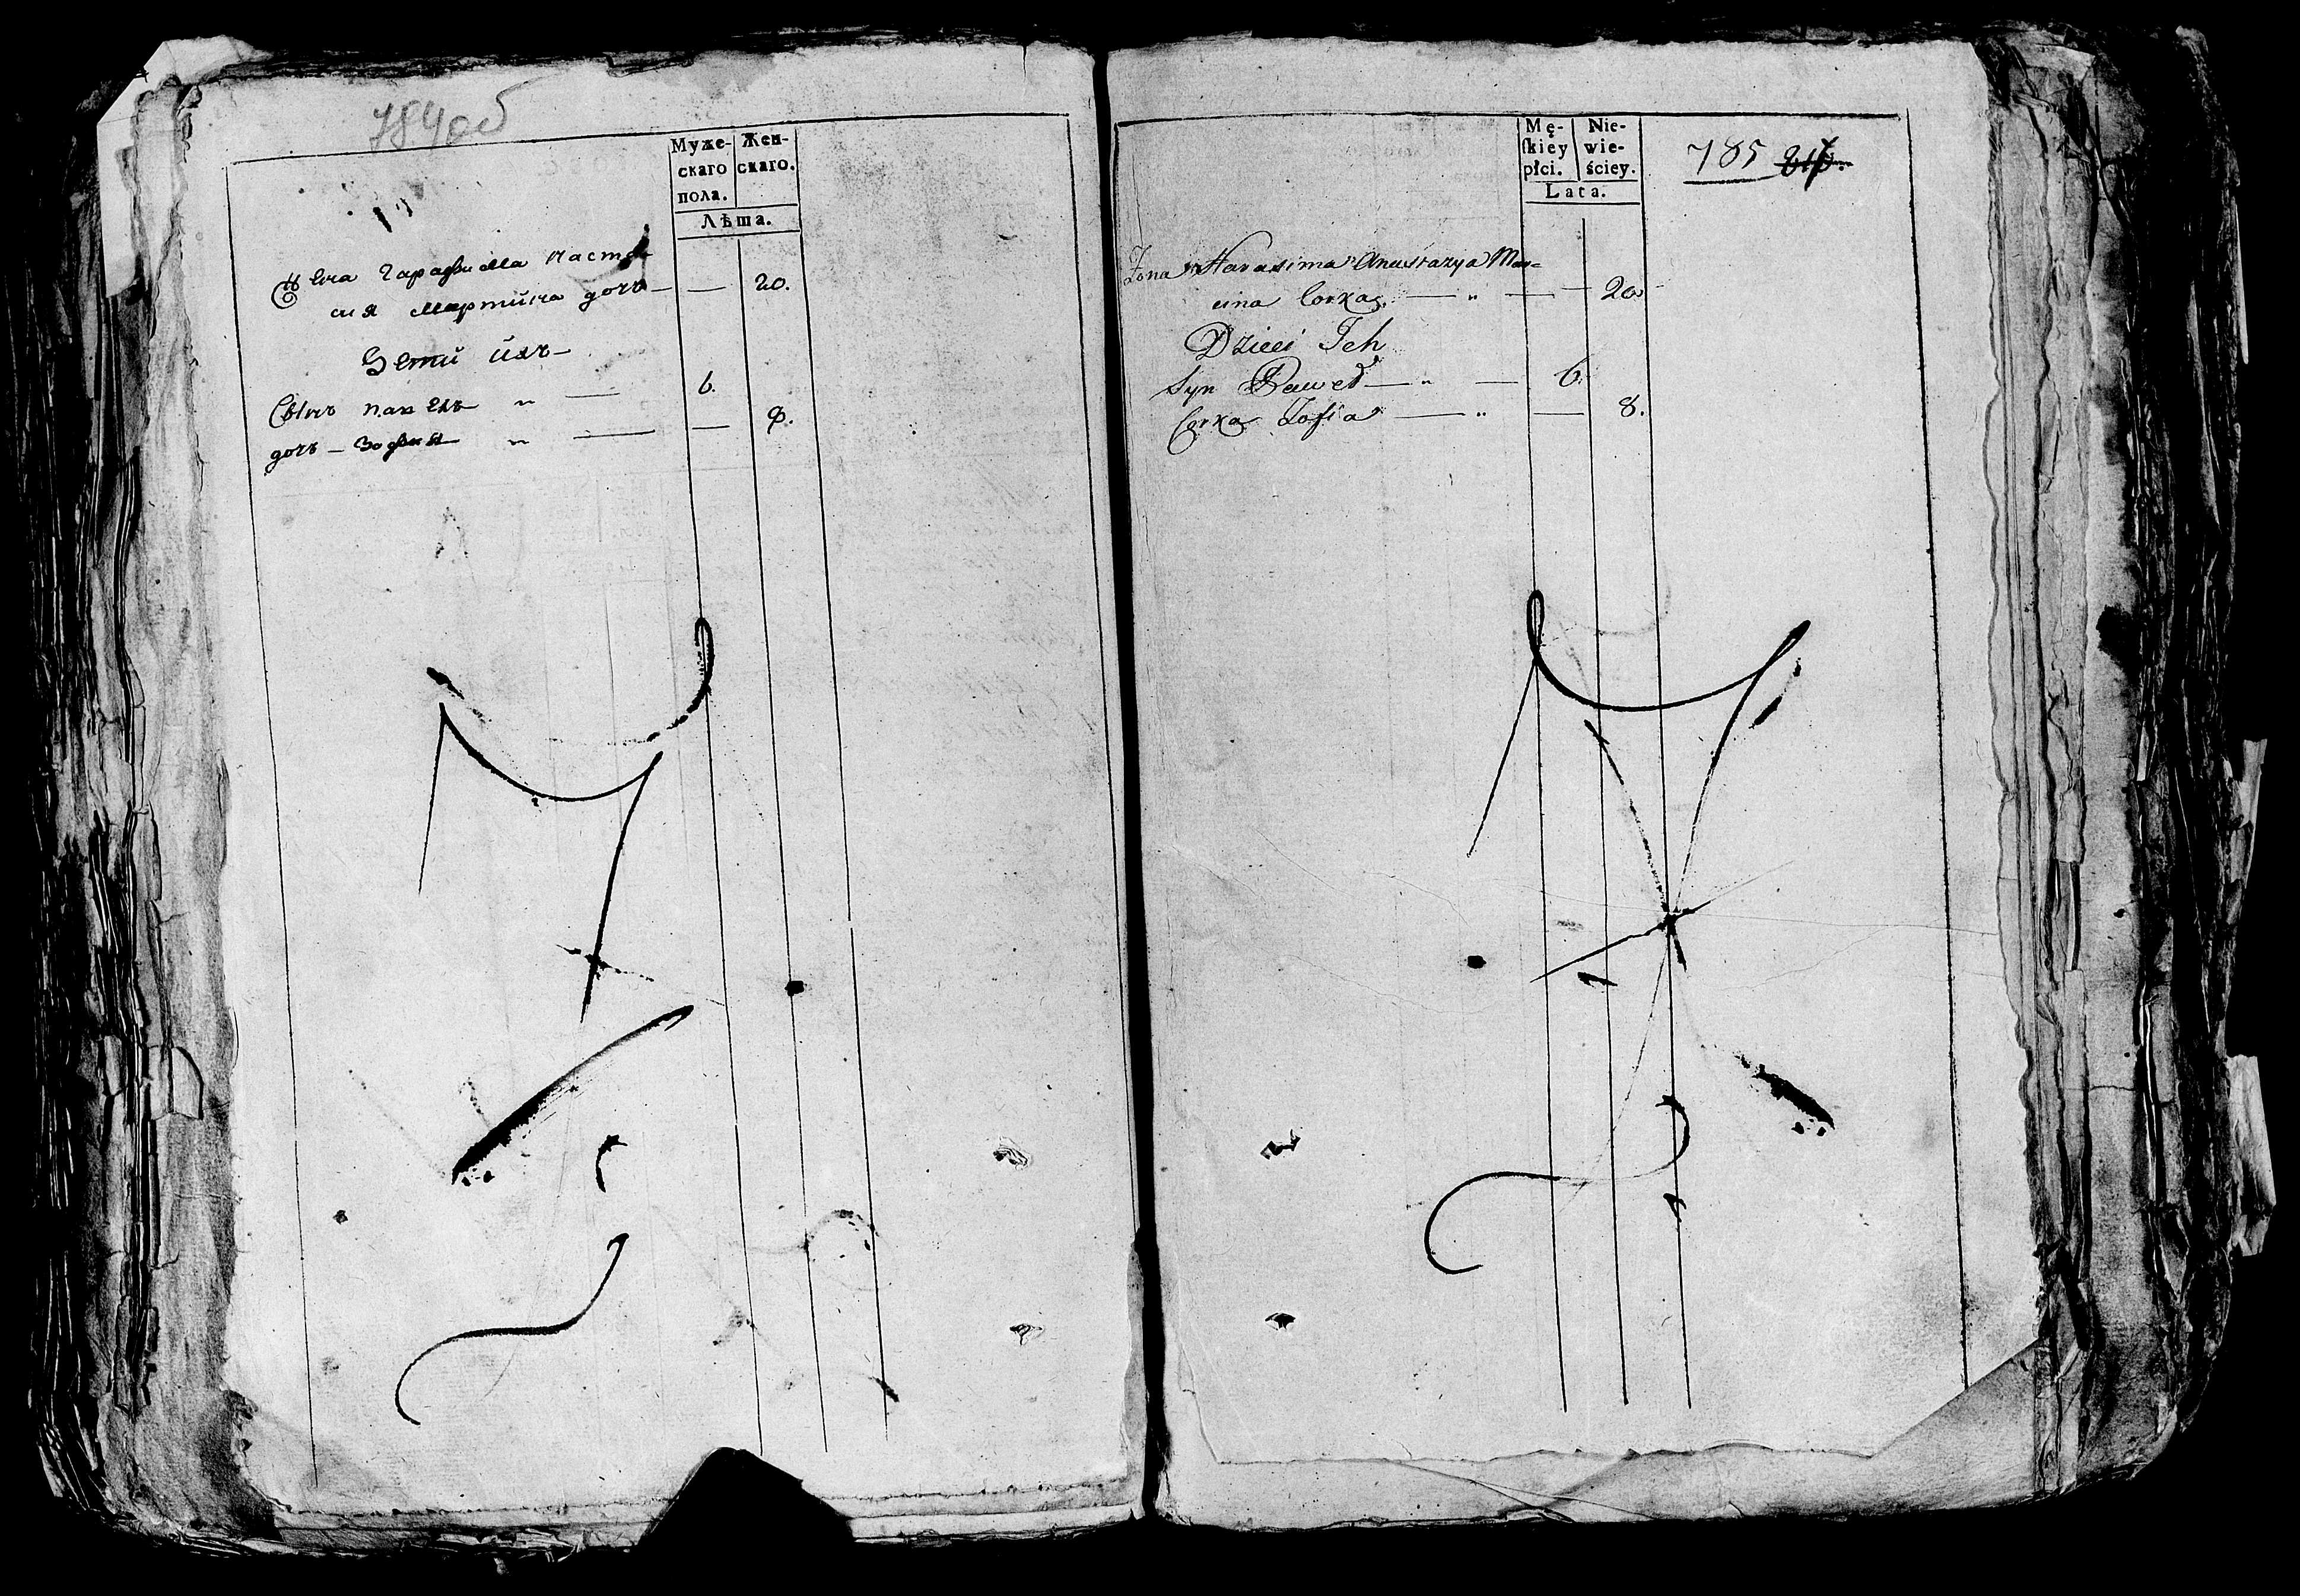 784об
Муже-
скаго
пола.
Жен-
скаго.
Лѣта.
Жена Гарасима Наста-
сия Мартина дочь — — 20.
Дети ихъ
Сынъ Павелъ „ — 6.
дочь — Зофия „ — — 8.
Mę-
ſkiey
płci.
Nie-
wie-
ściey.
Lata.
785
Żona Harasima Anastazya Mar-
cina Corka — „ — — 20
Dzieci Ich
Syn Paweł — „ — 6.
Corka Zofia — „ — 8.